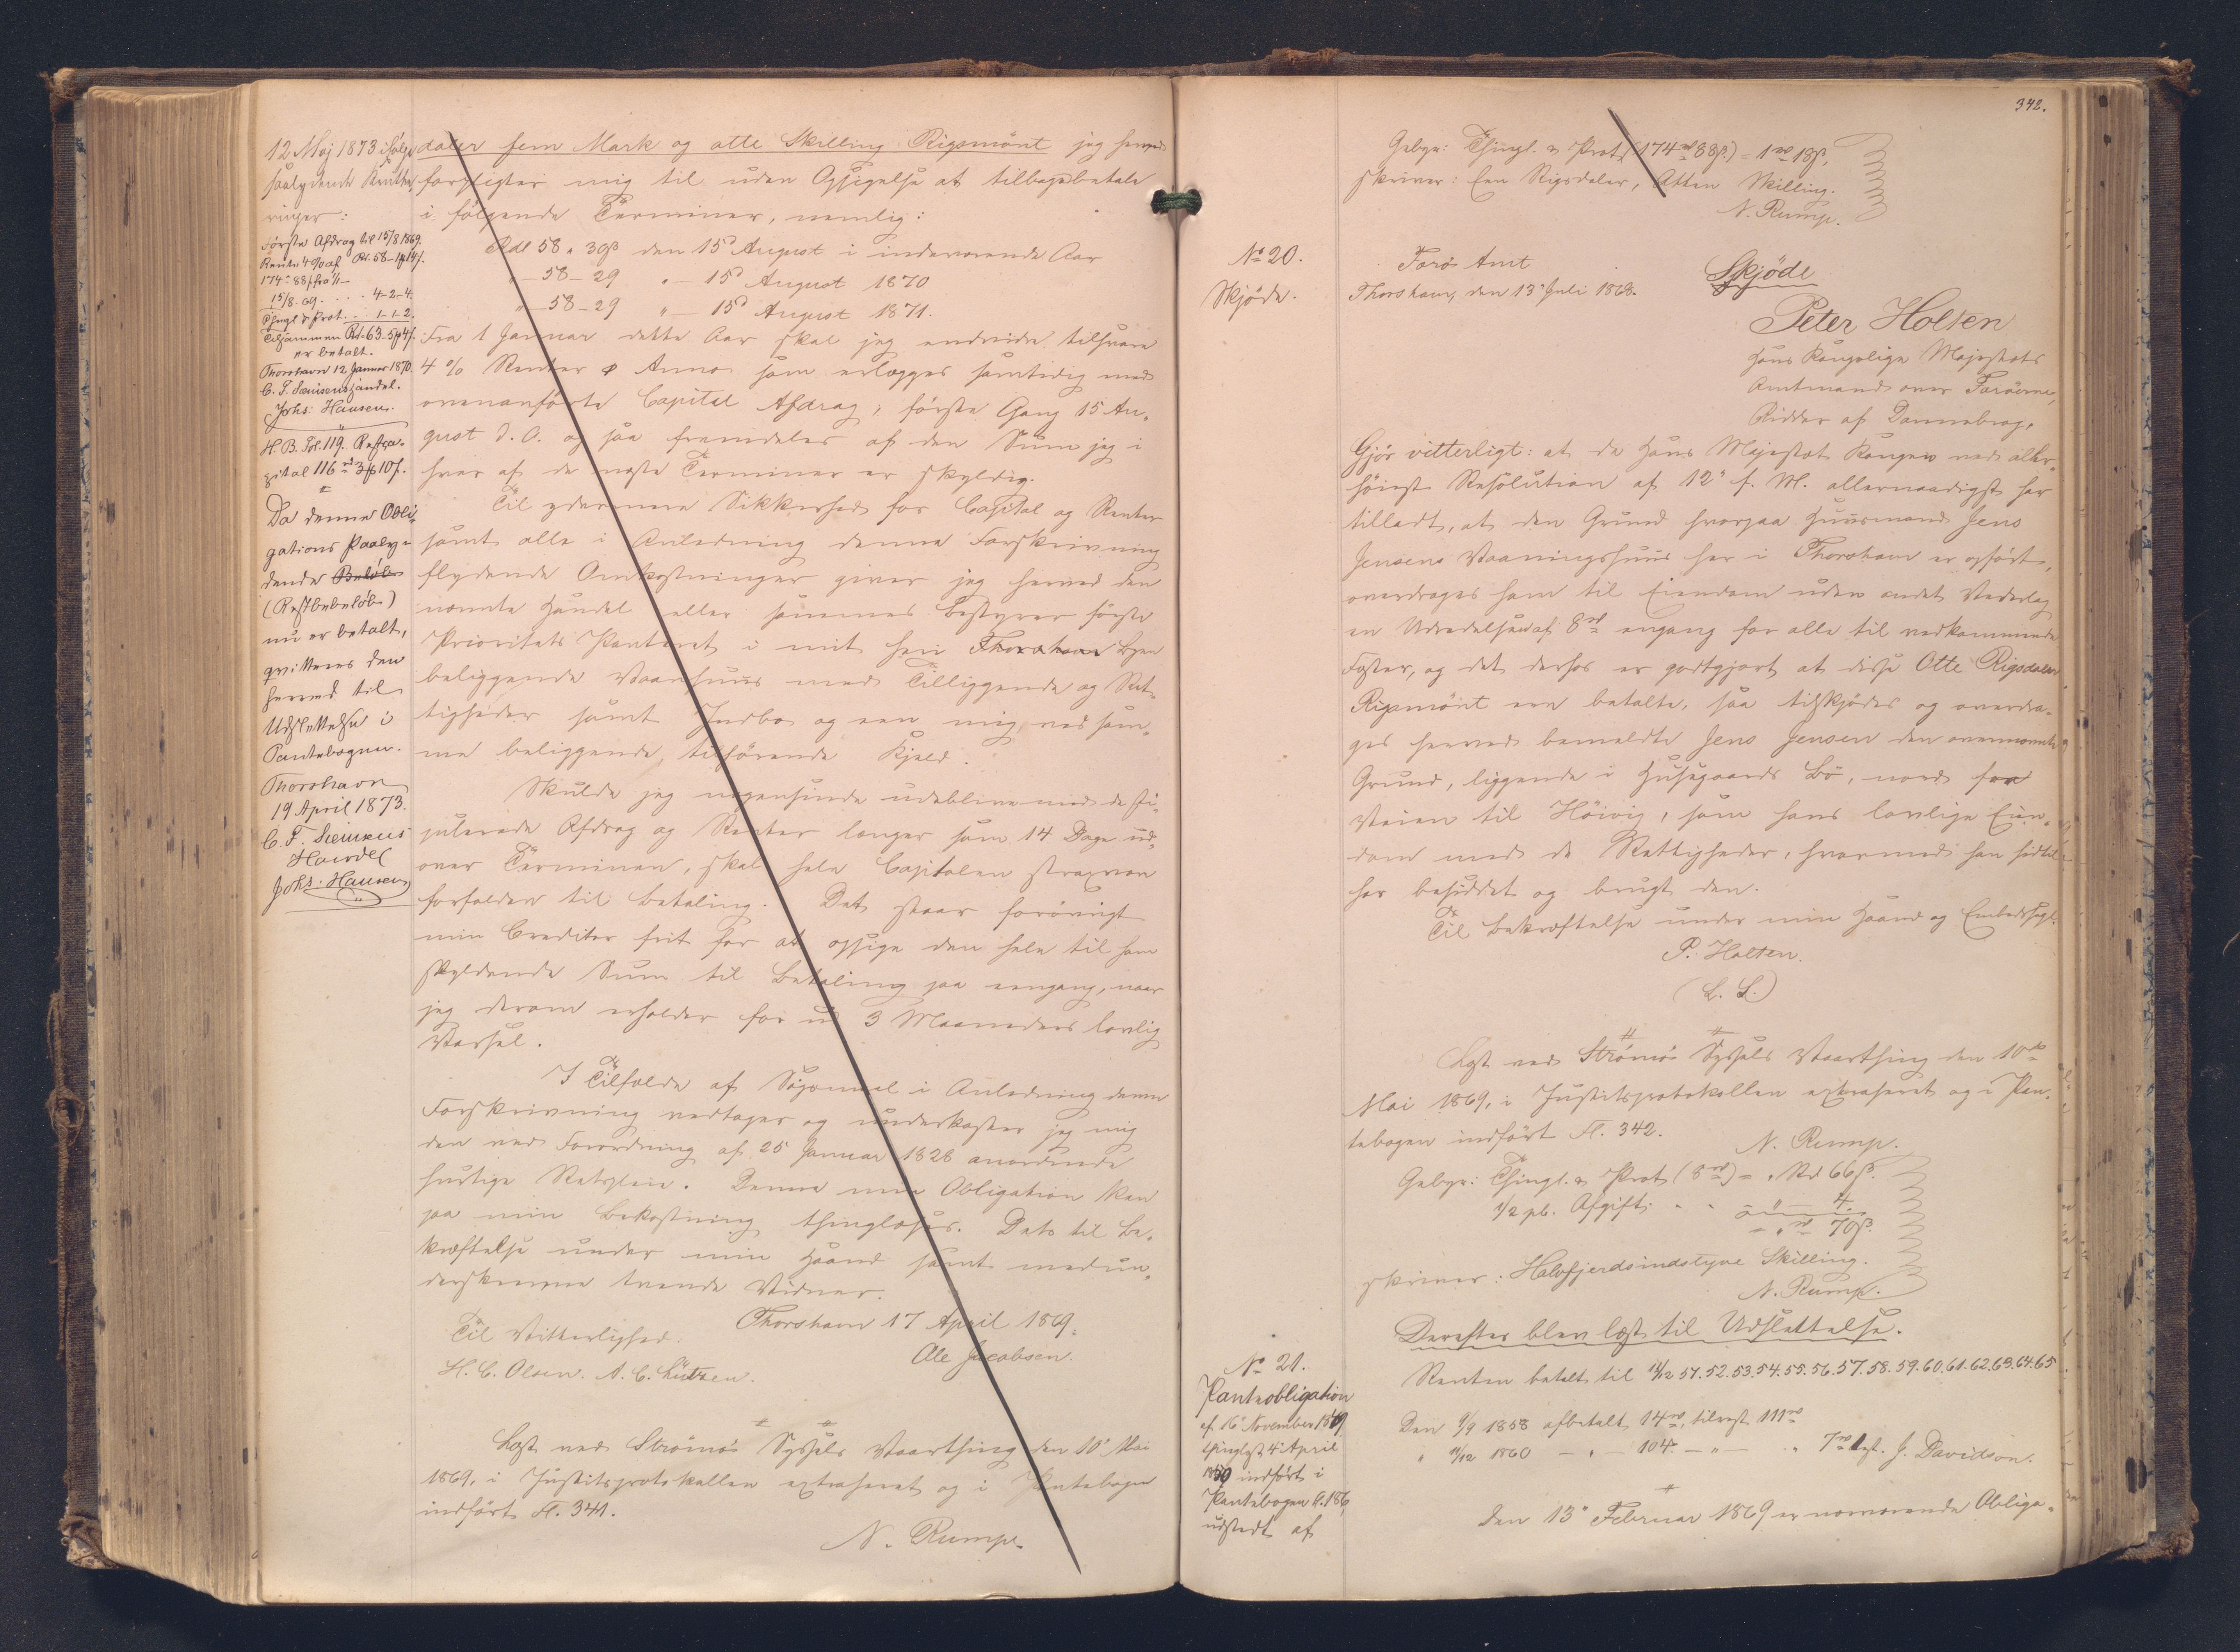 12 Maj 1873 ifølge
saalydende Kvitte
ringer:
Første Afdrag til 15/8 1869.
Rente 4 % af Rd. 58-1 14
174 88 fra 1/1
15/8. 69. . . . 4-2-4.
Thingl & Prot. . . 1-1-2.
Tilsammen Rd. 63-5 4
er betalt.
Thorshavn 12 Januar 1870.
C. F. Siemsens Handel.
Johs: Hansen.
H. B. Fol. 119. Restca-
pital 116 3 10
Da denne Obli-
gations paaly-
dende Beløb
(Restbebeløb)
nu er betalt,
qvitteres den
herved til
Udslettelse i
Pantebogen.
Thorshavn
19 April 1873.
C. F. Siemsens
Handel
Johs. Hansen
daler fem Mark og otte Skilling Rigsmönt jeg herved
forpligter mig til uden Opsigelse at tilbagebetale
i følgende Terminer, nemlig:
Rdl 58 " 30 ß den 15 August i indeværende Aar
" - 58 - 29 " - 15 August 1870
" - 58 - 29 " - 15 August 1871.
Fra 1 Januar dette Aar skal jeg endvidre tilsvare
4 % Renter Anno som erlægges samtidig med
ovenanførte Capital Afdrag, første Gang 15 Au-
gust d. A. og saa fremdeles af den Sum jeg i
hver af de næste Terminer er skyldig.
Til ydermere Sikkerhed for Capital og Renter
samt alle i Anledning denne Forskrivning
flydende Omkostninger giver jeg herved den
nævnte Handel eller sammes Bestyrer første
Prioritets Panteret i mit her i Thorshavn Byen
beliggende Vaanhuus med Tilliggende og Ret-
tigheder samt Indbo og een mig, ved sam-
me beliggende, tilhörende Kjæld.
Skulde jeg nogensinde udeblive med de sti-
pulerede Afdrag og Renter længer som 14 Dage ud
over Terminen, skal hele Capitalen strax være
forfalden til Betaling. Det staar forövrigt
min Creditor frit for at opsige den hele til ham
skyldende Sum til Betaling paa eengang, naar
jeg derom erholder forud 3 Maaneders lovlig
Varsel.
I Tilfælde af Sögsmaal i Anledning denne
Forskrivning vedtager og underkaster jeg mig
den ved Forordning af 25 Januar 1828 anordnede
hurtige Retspleie. Denne min Obligation kan
paa min Bekostning thinglæses. Dets til Be-
kræftelse under min Haand samt medun-
derskrevne tvende Vidner.
Thorshavn 17 April 1869.
Ole Jacobsen.
Til Vitterlighed:
H. C. Olsen. A. C. Lützen.
Læst ved Strömö Syssels Vaarthing den 10 Mai
1869, i Justitsprotokollen extraheret og i Pantebogen
indfört Fl. 341.
N. Rump.
342.
Gebyr: Thingl. & Prot. (174 88 ß.) = 1 18 ß.
skriver: Een Rigsdaler, Atten Skilling.
N. Rump.
No 20.
Skjöde.
Farö Amt
Thorshavn, den 13 Juli 1868.
Skjöde
Peter Holten
Hans Kongelige Majestæts
Amtmand over Faröerne,
Ridder af Dannebrog,
Gjör vitterligt: at da Hans Majestæt Kongen ved aller-
höieste Resolution af 12 f. M. allernaadigst har
tilladt, at den Grund hvorpaa Huusmand Jens
Jensens Vaaningshuus her i Thorshavn er opfört,
overdrages ham til Eiendom uden andet Vederlag
en Udredelsen af 8 engang for alle til vedkommende
Fæster, og det derhos er godtgjort at disse Otte Rigsdaler
Rigsmönt ere betalte, saa tilskjödes og overdra-
ges herved bemeldte Jens Jensen den ovennævnte
Grund, liggende i Husegaards Bö, nord for
Veien til Höivig, som hans lovlige Eien-
dom med de Rettigheder, hvormed han hidtil
har besiddet og brugt den.
Til Bekræftelse under min Haand og Embedssegl.
P. Holten.
(L. S.)
Læst ved Strömö Syssels Vaarthing den 10de
Mai 1869, i Justitsprotokollen extraheret og i Pan-
tebogen indfört Fl. 342.
N. Rump.
Gebyr: Thingl. & Prot (8) = " Rd 66 ß.
1/2 pCt. Afgift. . . " 4.
" 70 ß.
skriver: Halvfjerdsindstyve Skilling.
N. Rump.
Derefter blev læst til Udslettelse.
No 21.
Panteobligation
af 16 November 1849
thinglæst 4 April
1850 indfört i
Pantebogen Fl. 186
udstedt af
Renten betalt til 11/12 51. 52. 53. 54. 55. 56. 57. 58. 59. 60. 61. 62. 63. 64. 65
Den 4/9 1858 afbetalt 14, tilrest 111
" 11/12 1860 - " - 104 - " - " 7 rest. J. Davidson.
Den 13 Februar 1869 er nærværende Obliga-